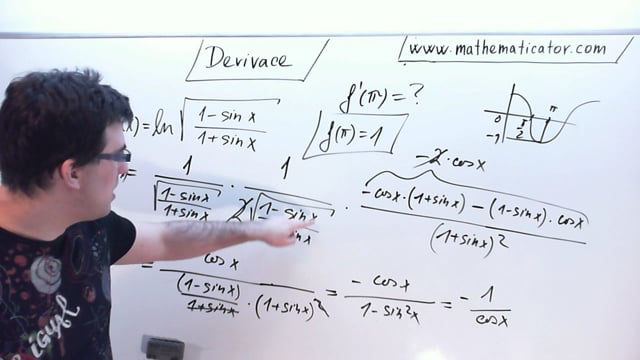 Derivace
www.mathematicator.com
f'(π) = ?
x) = ln √((1 - sin x)/(1 + sin x))
f'(π) = 1
0 π/2 π
-1
-2·cos x
= 1/√((1-sin x)/(1+sin x)) · 1/(2√((1-sin x)/ sin x)) · (-cos x·(1+sin x) - (1-sin x)·cos x)/(1+sin x)²
= cos x/((1-sin x)/(1+sin x)·(1+sin x)²) = -cos x/(1-sin²x) = -1/cos x